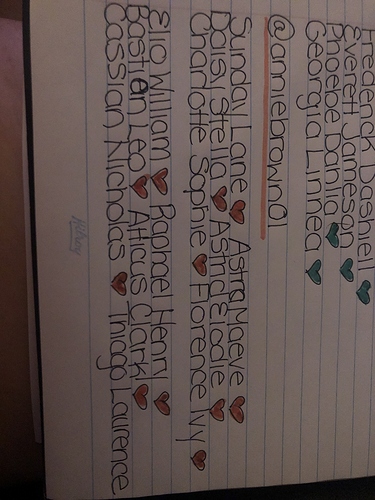 Frederick Dashiell ♥
Everett Jameson ♥
Phoebe Dahlia ♥
Georgia Linnea ♥
@amiebrown01
Sunday Lane ♥ Astra Maeve ♥
Daisy Stella ♥ Astrid Elodie ♥
Charlotte Sophie ♥ Florence Ivy ♥
Elio William ♥ Raphael Henri ♥
Bastian Leo ♥ Atticus Clark ♥
Cassian Nicholas ♥ Thiago Laurence
Hilroy